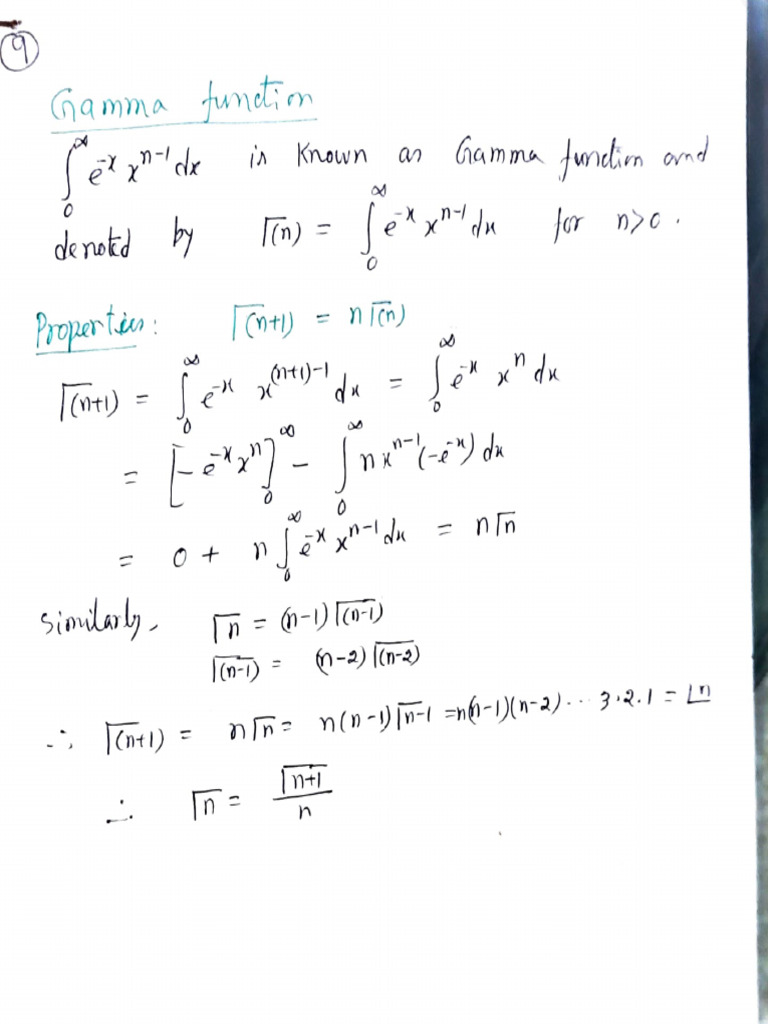 9
Gamma function
∫₀^∞ e^{-x} x^{n-1} dx is known as Gamma function and
denoted by Γ(n) = ∫₀^∞ e^{-x} x^{n-1} dx for n>0.
Properties: Γ(n+1) = nΓ(n)
Γ(n+1) = ∫₀^∞ e^{-x} x^{(n+1)-1} dx = ∫₀^∞ e^{-x} x^n dx
= [-e^{-x} x^n]₀^∞ - ∫₀^∞ n x^{n-1} (-e^{-x}) dx
= 0 + n ∫₀^∞ e^{-x} x^{n-1} dx = nΓn
Similarly, Γn = (n-1)Γ(n-1)
Γ(n-1) = (n-2)Γ(n-2)
∴ Γ(n+1) = nΓn = n(n-1)Γn-1 = n(n-1)(n-2)... 3·2·1 = ⌊n
∴ Γn = Γn+1 / n